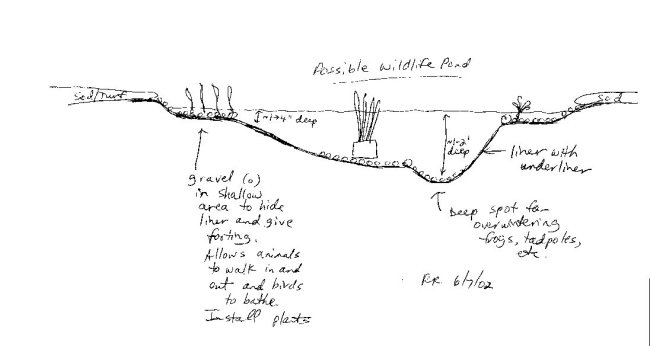 Possible Wildlife Pond
Sod/Turf
Sod
~1→4" deep
~1-2'
deep
liner with
underliner
gravel (o)
in shallow
area to hide
liner and give
footing.
Allows animals
to walk in and
out and birds
to bathe
Install plants
Deep spot for
overwintering
frogs, tadpoles,
etc.
RR 6/7/02